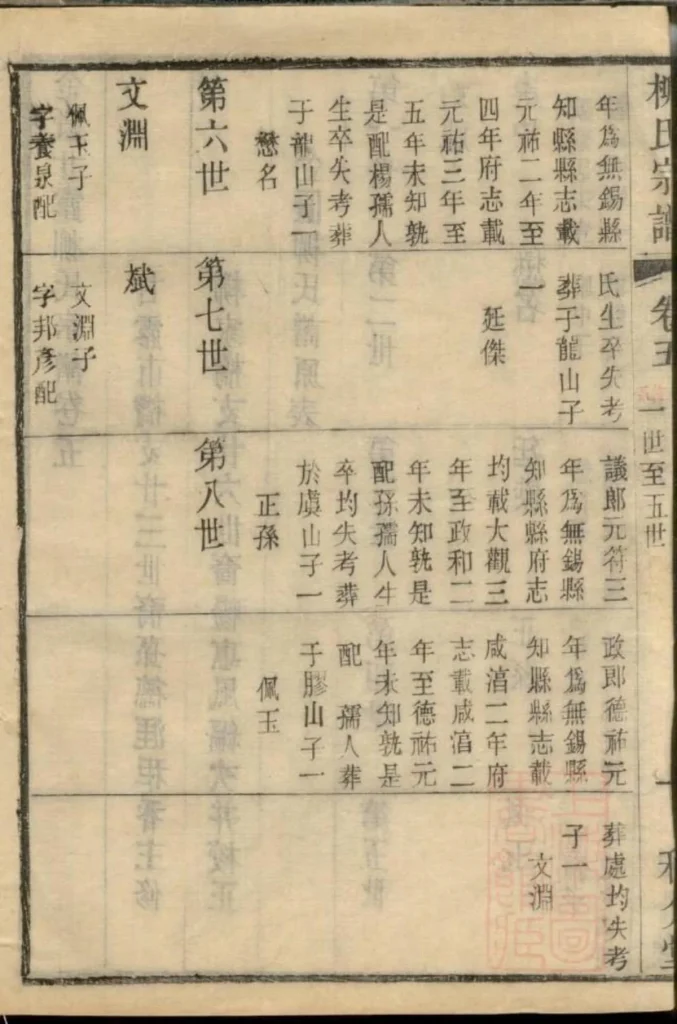 柳氏宗譜
卷五
一世至五世
年爲無錫縣
知縣縣志載
元祐二年至
四年府志載
元祐三年至
五年未知孰
是配楊孺人
生卒失考葬
于龍山子一
懋名
氏生卒失考
葬于龍山子
一
廷傑
議郎元符三
年爲無錫縣
知縣縣府志
均載大觀三
年至政和二
年未知孰是
配孫孺人生
卒均失考葬
於虞山子一
正孫
政郎德祐元
年爲無錫縣
知縣縣志載
咸淳二年府
志載咸淳二
年至德祐元
年未知孰是
配 孺人葬
于膠山子一
佩玉
葬處均失考
子一
文淵
第六世
文淵
佩玉子
字養泉配
第七世
斌
文淵子
字邦彥配
第八世